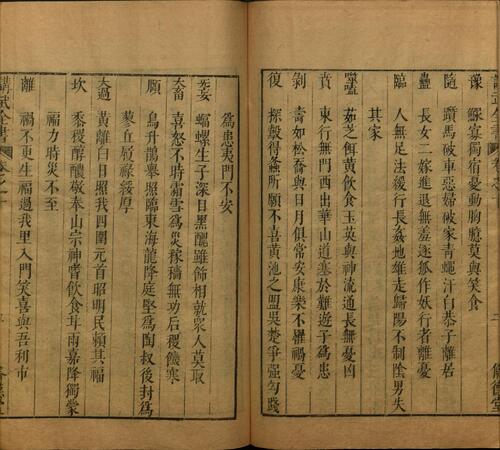 豫　鰥寡獨宿憂動胸臆莫與笑食
隨　躓馬破車惡婦破家青蠅汙白恭子離居
蠱　長女二嫁進退無羞逐狐作妖行者離憂
臨　人無足法緩行長姦地雄走歸陽不制陰男失
其家
噬嗑　茹芝餌黃飲食玉英與神流通長無憂凶
賁　東行無門西出華山道塞於難遊子為患
剝　壽如松喬與日月俱常安康樂不罹禍憂
復　探鷇得螽所願不喜黃池之盟吳楚爭强勾踐
為患夷門不安
无妄　蝸螺生子深目黑醜雖飾相就衆人莫取
大畜　喜怒不時霜雪為災稼穡無功后稷饑寒
頤　烏升鵲舉照臨東海龍降庭堅為陶叔後封為
蓼丘履祿綏厚
大過　黃離白日照我四國元首昭明民賴其福
坎　黍稷醇醲敬奉山宗神嗜飲食甘雨嘉降獨蒙
福力時災不至
離　禍不更生福過我里入門笑喜與吾利市